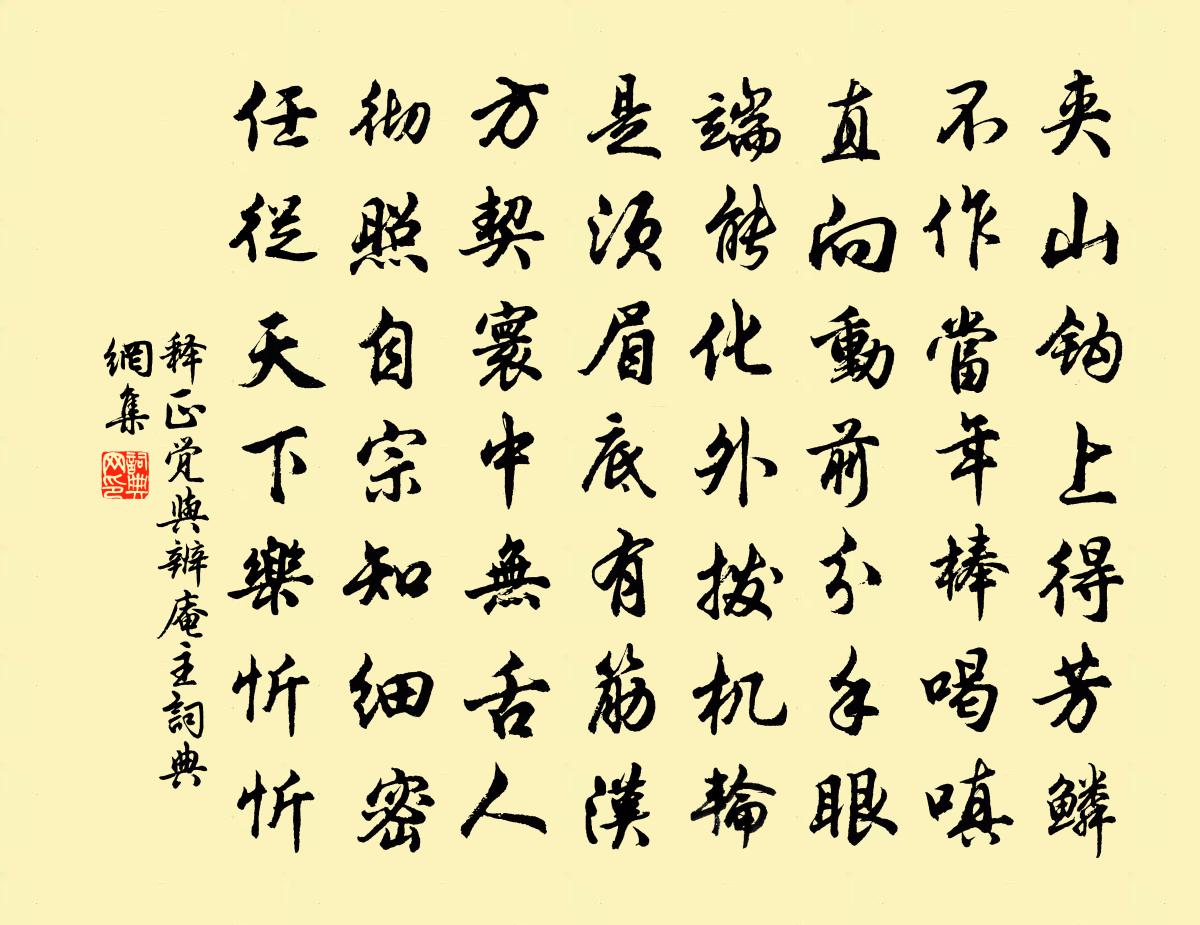 夹山钩上得芳鳞
不作當年棒喝嗔
直向動前分手眼
端能化外拨机輪
是须眉底有筋漢
方契寰中無舌人
彻照自宗知细密
任從天下樂忻忻
释正觉與辨庵主詞典
網集
詞典网印